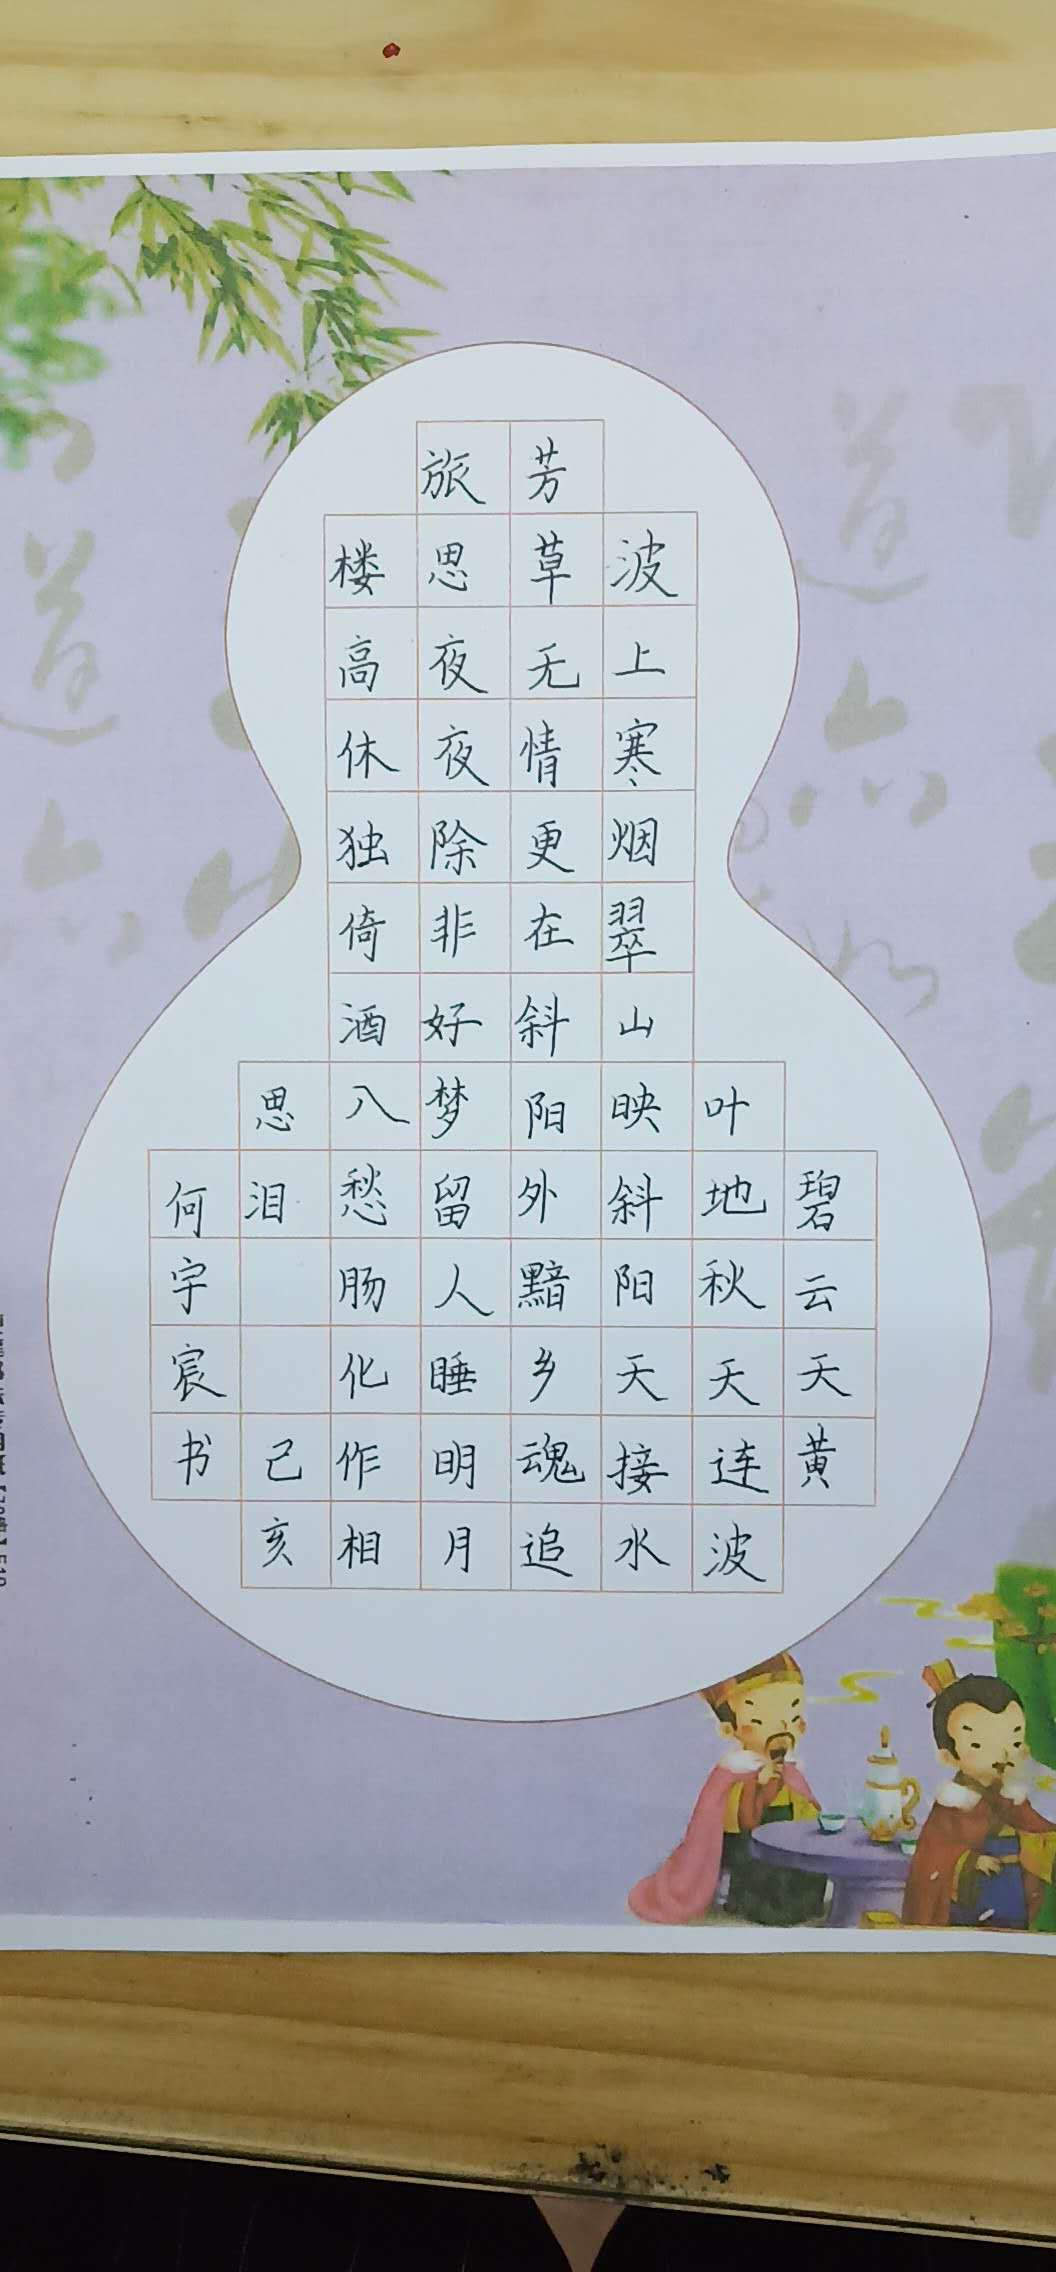 碧云天黄
叶地秋天连波
波上寒烟翠山映斜阳天接水
芳草无情更在斜阳外黯乡魂追
旅思夜夜除非好梦留人睡明月
楼高休独倚酒八愁肠化作相
思泪 己亥
何宇宸书